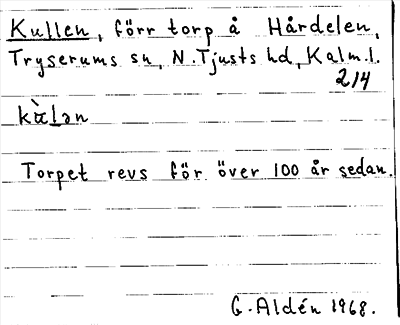 Kullen, förr torp å Hårdelen,
Tryserums sn, N. Tjusts hd, Kalm. l.
214
Torpet revs för över 100 år sedan.
G. Aldén 1968.